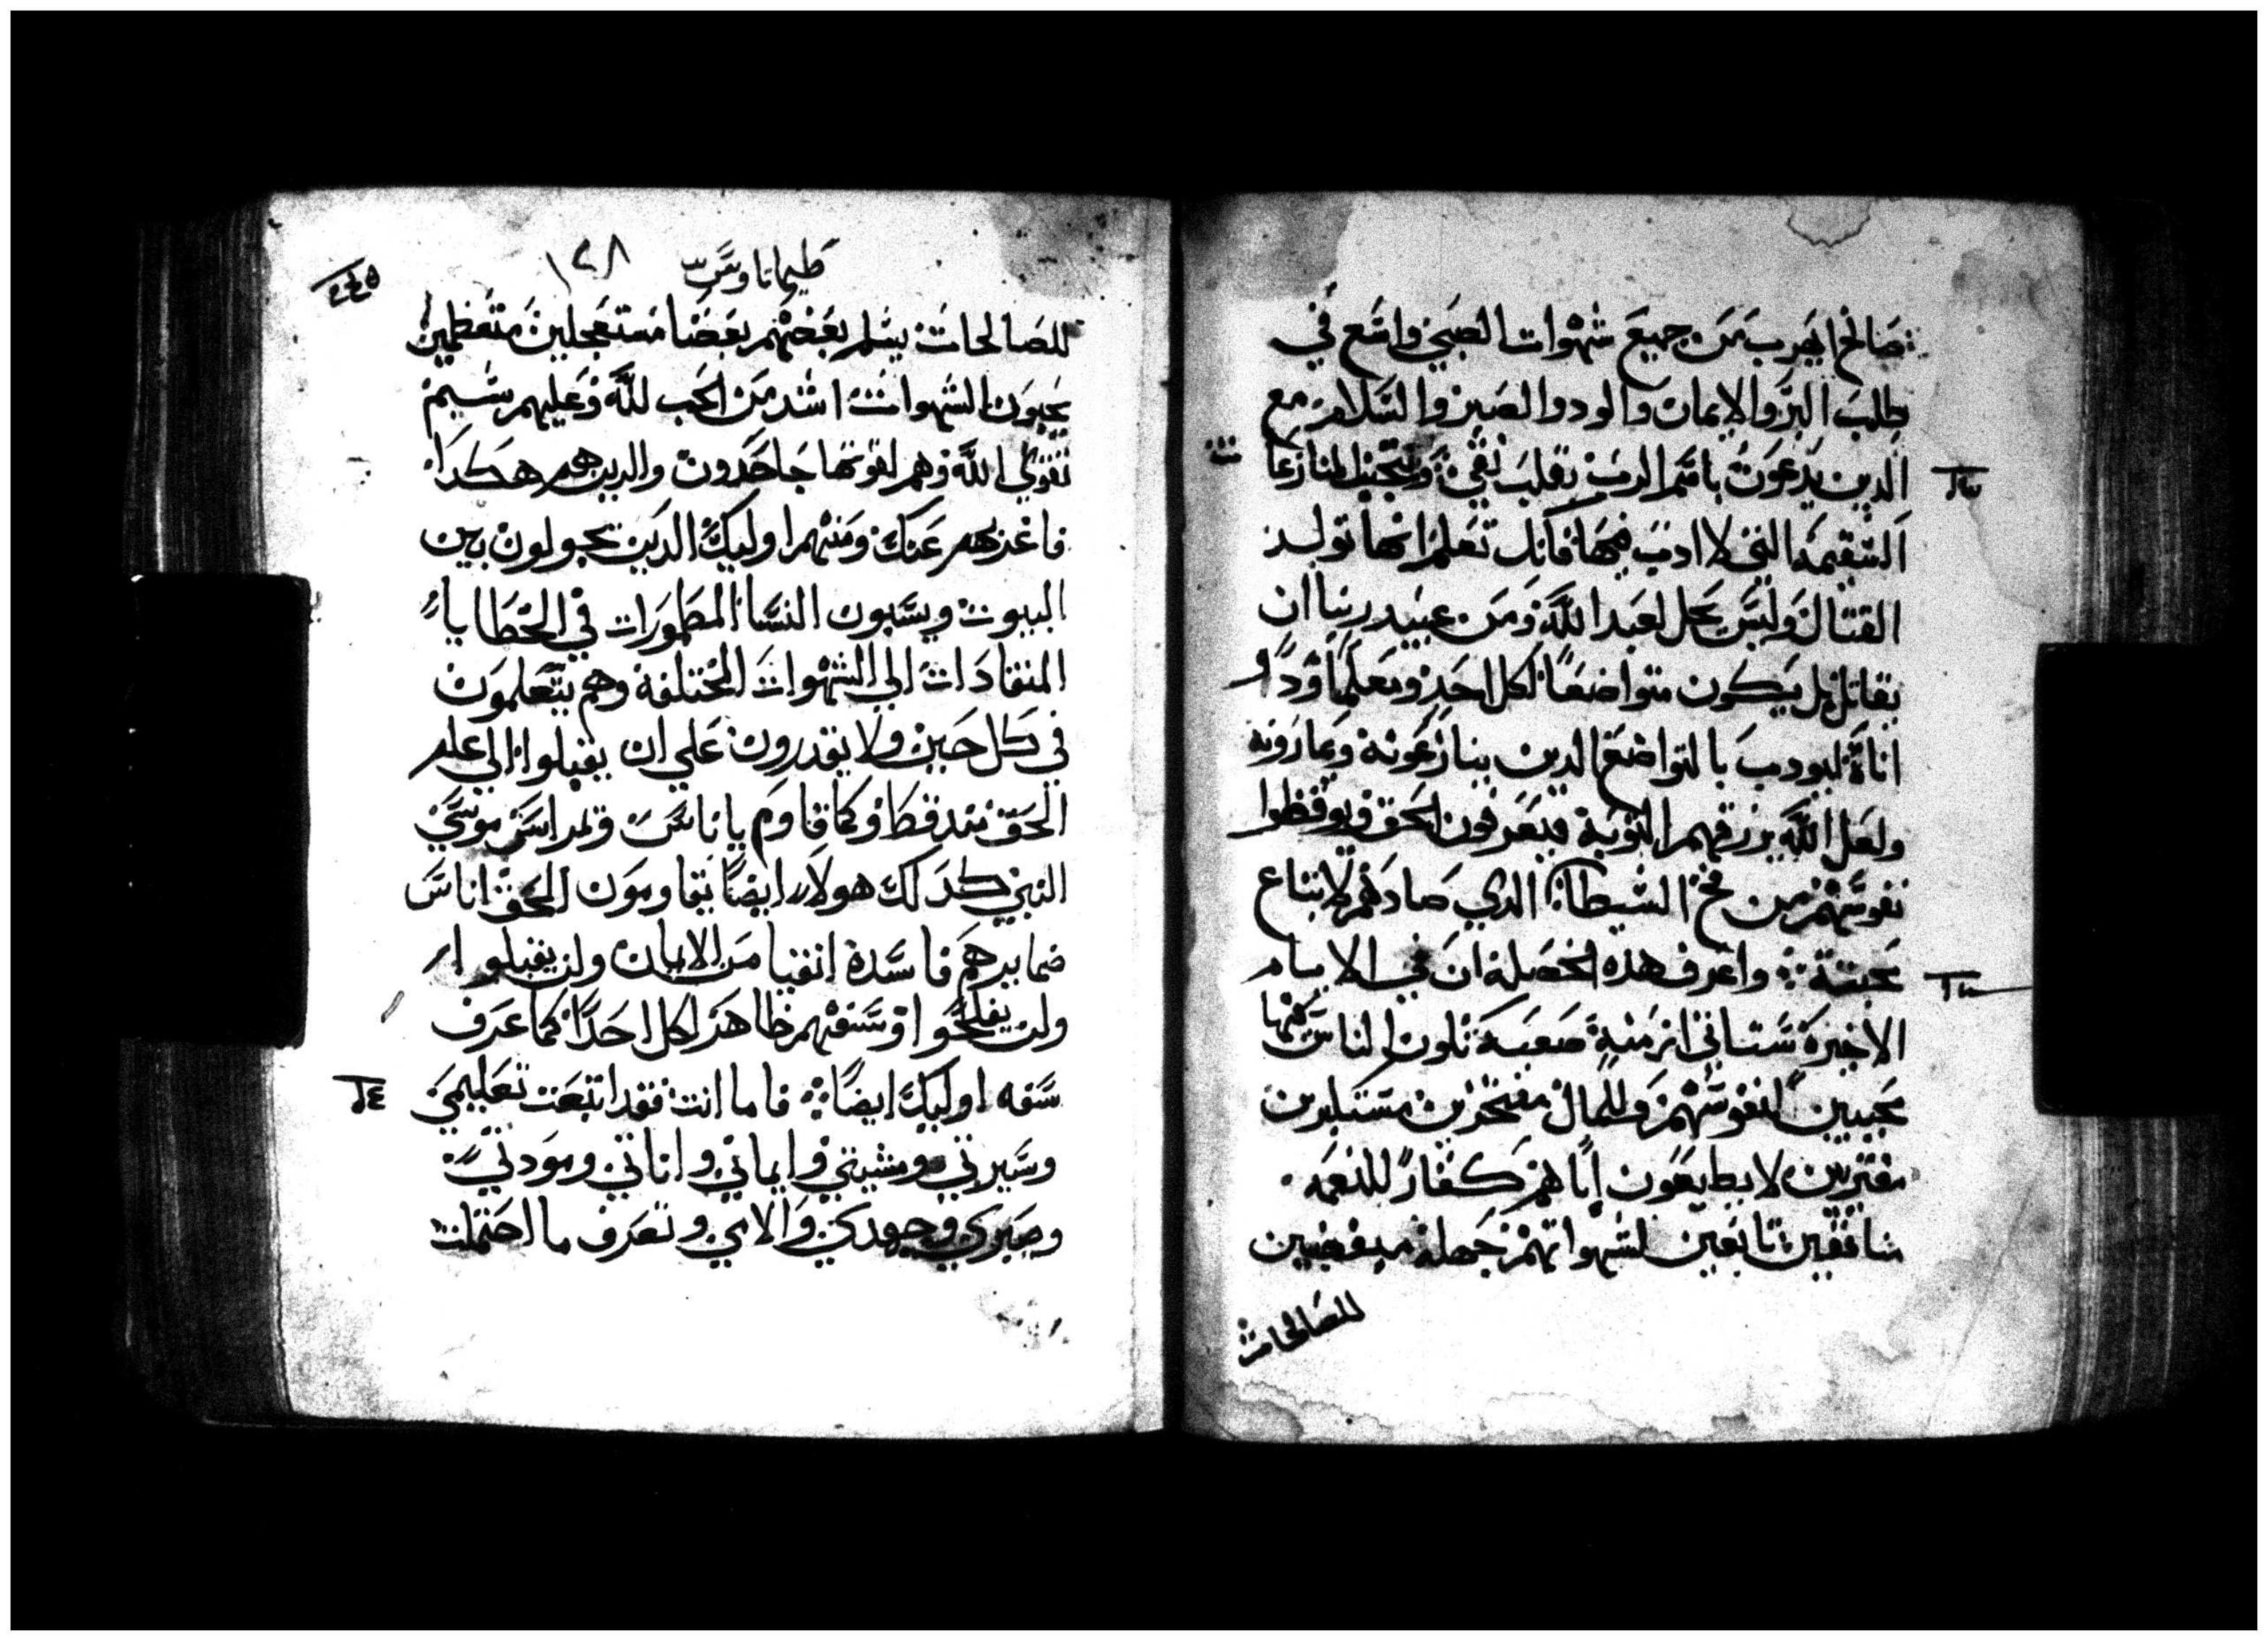 صالح اهرب من جميع شهوات الصبي واسع في
طلب البر والايمان والود والصبر والسلام مع
الدين يدعون باسم الرب بقلب نقي وتجنب المنازعات
السقيمه التي لا ادب فيها فانك تعلم انها تولد
القتال وليس يحل لعبد الله ومن عبيد ربنا ان
يقاتل بل يكون متواضعا لكل احد ومعلما ودا
اناة ليودب بالتواضع الدين ينازعونه ويمارونه
ولعل الله يرزقهم التوبة فيعرفون الحق ويوقظوا
نفوسهم من فخ الشيطان الدي صادهم لاتباع
محبته واعرف هذه الخصلة ان في الايام
الاخيرة ستاتي ازمنة صعبة تكون الناس فيها
محبين لنفوسهم وللمال مفتخرين مستكبرين
مفترين لا يطيعون اباهم كفار للنعمه
منافقين تابعين لشهواتهم جهلة مبغضين
للصالحات
طيماتاوس ١٢٨
٢٤٥
للصالحات يسلم بعضهم بعضا مستعجلين متعظمين
يحبون الشهوات اشد من الحب لله وعليهم شيم
تقوي الله وهم لقوتها جاحدون والدين هم هكدا
فاعزبهم عنك ومنهم اوليك الدين يجولون بين
البيوت ويسبون النسا المطمورات في الخطايا
المنقادات الي الشهوات المختلفة وهم يتعلمون
في كل حين ولا يقدرون علي ان يقبلوا الي علم
الحق مند قط وكما قاوم ياناس ويمراس موسي
النبي كدلك هولاء ايضا يقاومون الحق اناس
ضمايرهم فاسدة انفيا من الايمان ولن يقبلوا
ولن يفلحوا وسفههم ظاهر لكل احد كما عرف
سفه اوليك ايضا فاما انت فقد اتبعت تعليمي
وسيرتي ومشيتي وايماني واناتي ومودتي
وصبري وجهدي والامي وتعرف ما احتملت